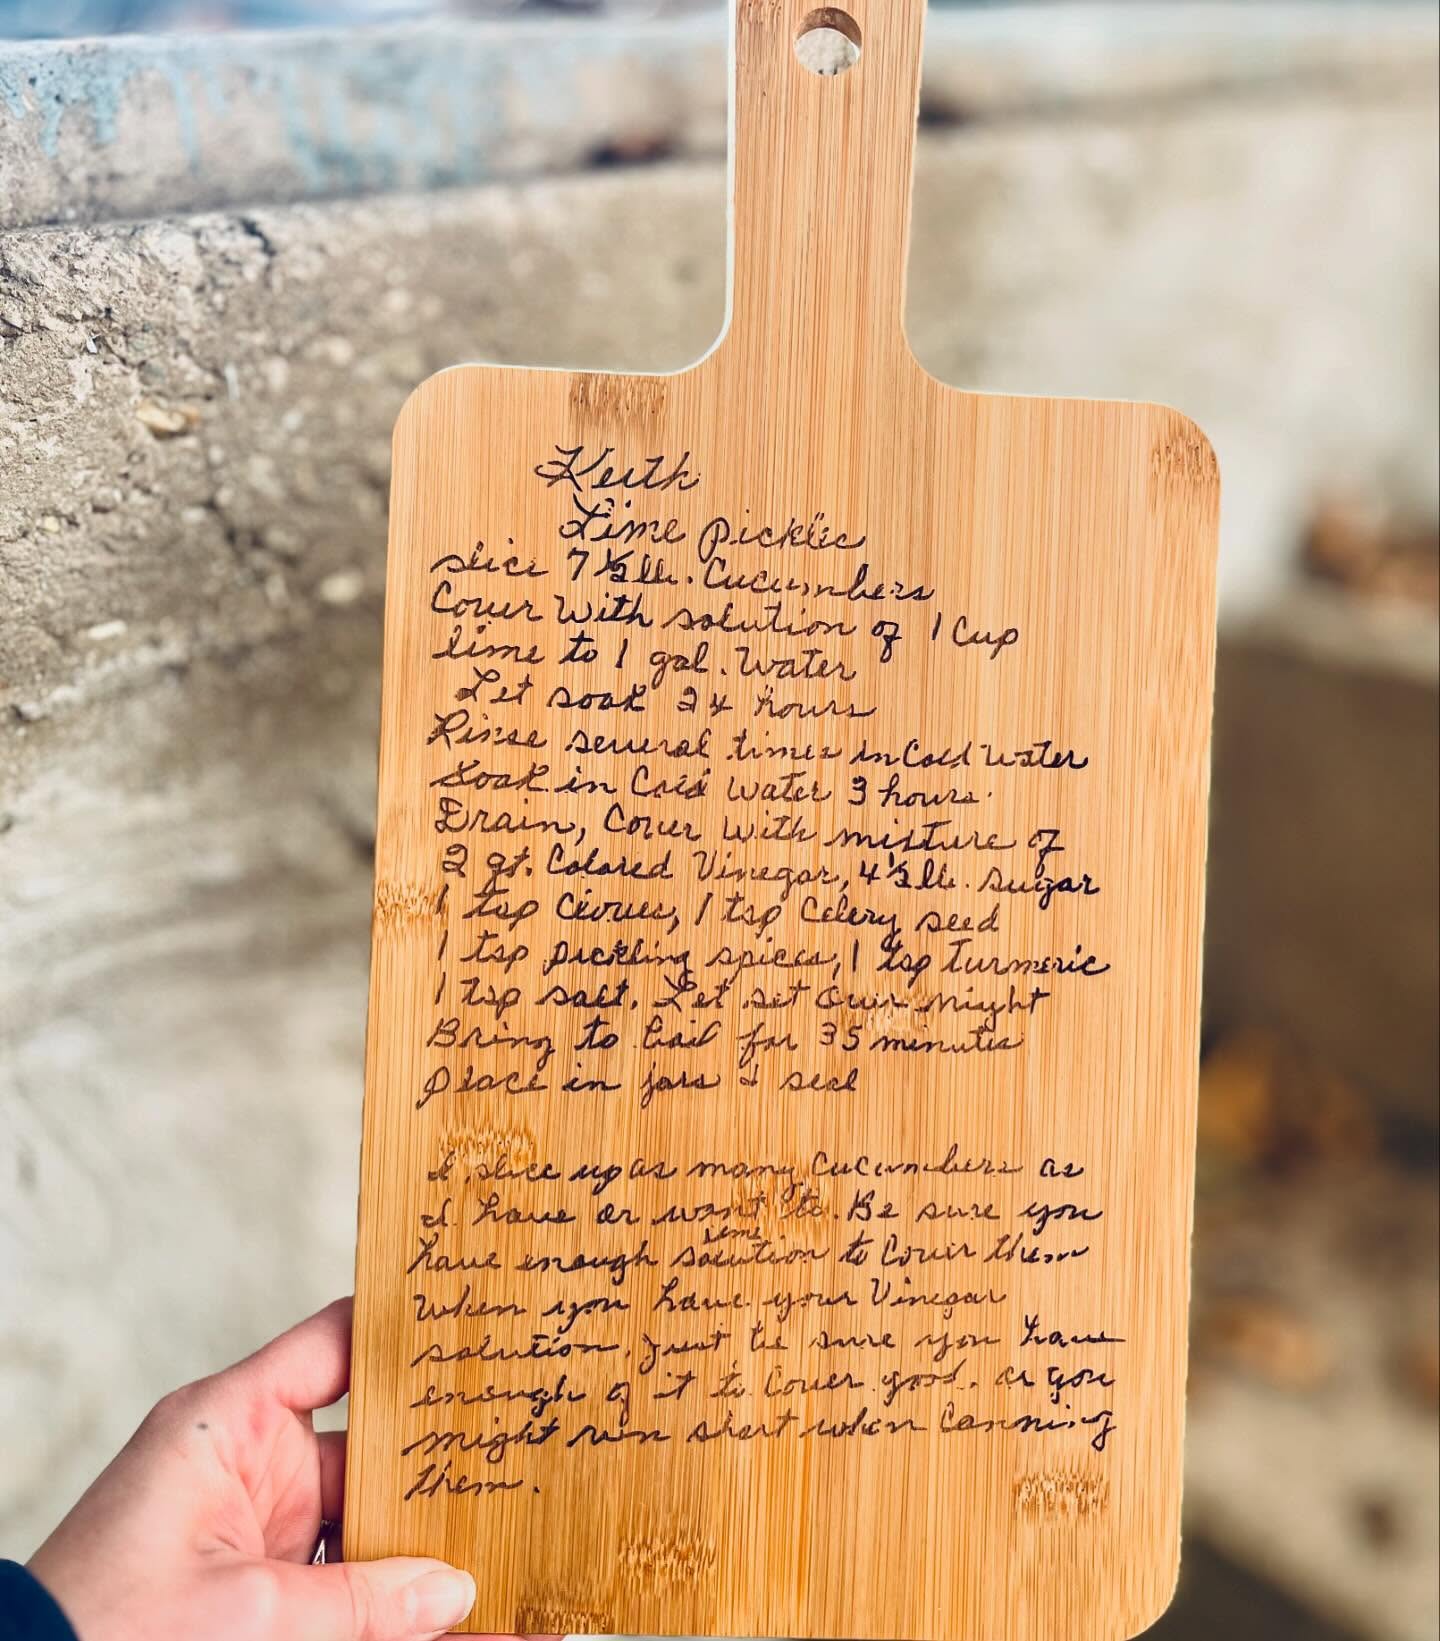 Keith
Lime Pickles
slice 7 1/2 lb. Cucumbers
Cover With solution of 1 Cup
lime to 1 gal. Water
Let soak 24 hours
Rinse several times in Cold Water
Soak in Cold Water 3 hours.
Drain, Cover With mixture of
2 qt. Colored Vinegar, 4 1/2 lb. sugar
1 tsp Cloves, 1 tsp Celery seed
1 tsp pickling spices, 1 tsp turmeric
1 tsp salt. Let set over night
Bring to boil for 35 minutes
Place in jars & seal
I slice up as many Cucumbers as
I have or want to. Be sure you
lime
have enough solution to Cover them
When you have your Vinegar
solution, just be sure you have
enough of it to Cover good. or you
might run short when Canning
them.